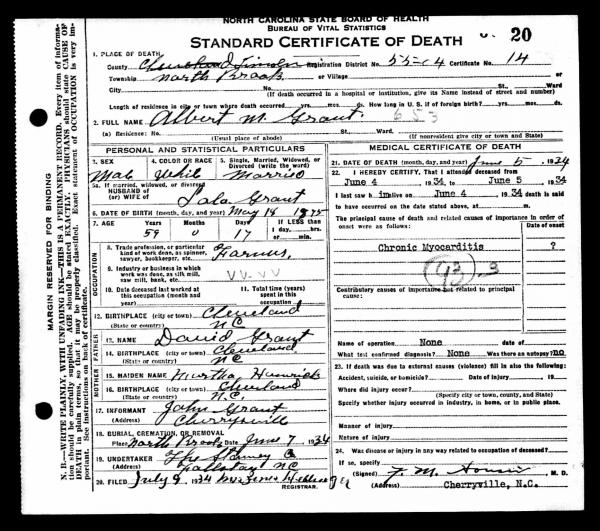 NORTH CAROLINA STATE BOARD OF HEALTH
BUREAU OF VITAL STATISTICS
STANDARD CERTIFICATE OF DEATH 20
1. PLACE OF DEATH
County Cleveland Lincoln Registration District No. 55-04 Certificate No. 14
Township North Brook or Village
City No. St. Ward
(If death occurred in a hospital or institution, give its Name instead of street and number)
Length of residence in city or town where death occurred yrs. mos. ds. How long in U. S. if of foreign birth? yrs. mos. ds.
2. FULL NAME Albert M. Grant 653
(a) Residence: No. St. Ward.
(Usual place of abode) (If nonresident give city or town and State)
PERSONAL AND STATISTICAL PARTICULARS
3. SEX 4. COLOR OR RACE 5. Single, Married, Widowed, or Divorced (write the word)
Male White Married
5a. If married, widowed, or divorced
HUSBAND of
(or) WIFE of Lala Grant
6. DATE OF BIRTH (month, day, and year) May 18 1875
7. AGE Years Months Days If LESS than 1 day, hrs. or min.
59 0 17
OCCUPATION
8. Trade, profession, or particular kind of work done, as spinner, sawyer, bookkeeper, etc. Farmer
9. Industry or business in which work was done, as silk mill, saw mill, bank, etc. VV-VV
10. Date deceased last worked at this occupation (month and year)
11. Total time (years) spent in this occupation
12. BIRTHPLACE (city or town) Cleveland
(State or country) NC
FATHER
13. NAME David Grant
14. BIRTHPLACE (city or town) Cleveland
(State or country) NC
MOTHER
15. MAIDEN NAME Martha Hamrick
16. BIRTHPLACE (city or town) Cleveland
(State or country) N.C.
17. INFORMANT John Grant
(Address) Cherryville
18. BURIAL, CREMATION, OR REMOVAL
Place North Brook Date June 7, 1934
19. UNDERTAKER The Stamey Co
(Address) Fallston NC
20. FILED July 9, 1934
REGISTRAR.
MEDICAL CERTIFICATE OF DEATH
21. DATE OF DEATH (month, day, and year) June 5, 1934
22. I HEREBY CERTIFY, That I attended deceased from
June 4, 1934, to June 5, 1934
I last saw him alive on June 4, 1934 death is said
to have occurred on the date stated above, at m.
The principal cause of death and related causes of importance in order of onset were as follows: Date of onset
Chronic Myocarditis ?
93.3
Contributory causes of importance not related to principal cause:
Name of operation None Date of
What test confirmed diagnosis? None Was there an autopsy? no
23. If death was due to external causes (violence) fill in also the following:
Accident, suicide, or homicide? Date of injury , 19
Where did injury occur?
(Specify city or town, county, and State)
Specify whether injury occurred in industry, in home, or in public place.
Manner of injury
Nature of injury
24. Was disease or injury in any way related to occupation of deceased?
If so, specify
(Signed) F. M. Houser M. D.
(Address) Cherryville, N.C.
MARGIN RESERVED FOR BINDING
N. B.—WRITE PLAINLY, WITH UNFADING INK—THIS IS A PERMANENT RECORD. Every item of information should be carefully supplied. AGE should be stated EXACTLY. PHYSICIANS should state CAUSE OF DEATH in plain terms, so that it may be properly classified. Exact statement of OCCUPATION is very important. See instructions on back of certificate.